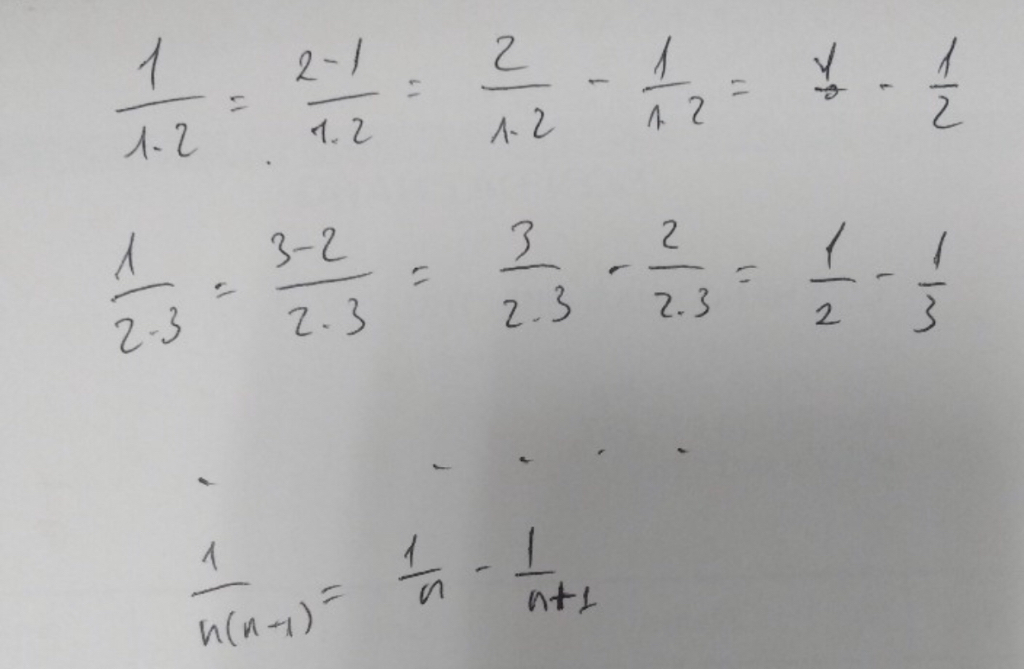 1/(1·2) = (2-1)/(1·2) = 2/(1·2) - 1/(1·2) = - 1/2
1/(2·3) = (3-2)/(2·3) = 3/(2·3) - 2/(2·3) = 1/2 - 1/3
. . . . .
1/(n(n-1)) = 1/n - 1/(n+1)